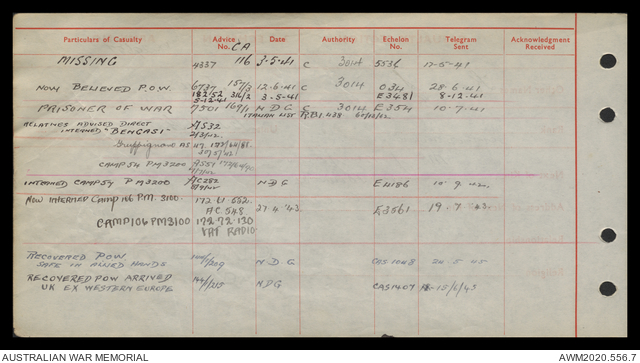 Particulars of Casualty Advice No. CA Date Authority Echelon No. Telegram Sent Acknowledgment Received
MISSING 4337 116 3-5-41 C 3014 5536 17-5-41
NOW BELIEVED P.O.W. 6737 157/3 12-6-41 C 3014 034 28-6-41
182/52 316/2 3-5-41 E3481 8-12-41
5-12-41
PRISONER OF WAR 7501 169/1 N D G C 3014 E354 10-7-41
ITALIAN LIST
RELATIVES ADVISED DIRECT A532
INTERNED "BENGASI" 2/3/42
Gruppignano AS 117. 177/64/81
30/5/42
CAMP 54 PM 3200 A551
INTERNED CAMP 54 PM 3200 AC282 N D G E4186 10 9 42
NOW INTERNED CAMP 106 P.M. 3100. 172.U.652. 27 4 '43. E3561 19.7.43.
AC.548
CAMP 106 PM 3100 172.72.130
VAT RADIO
RECOVERED POW N D G CAS 1048 24 5 45
SAFE IN ALLIED HANDS
RECOVERED POW ARRIVED N D G CAS 1407 18/6/45
UK EX WESTERN EUROPE
AUSTRALIAN WAR MEMORIAL AWM2020.556.7